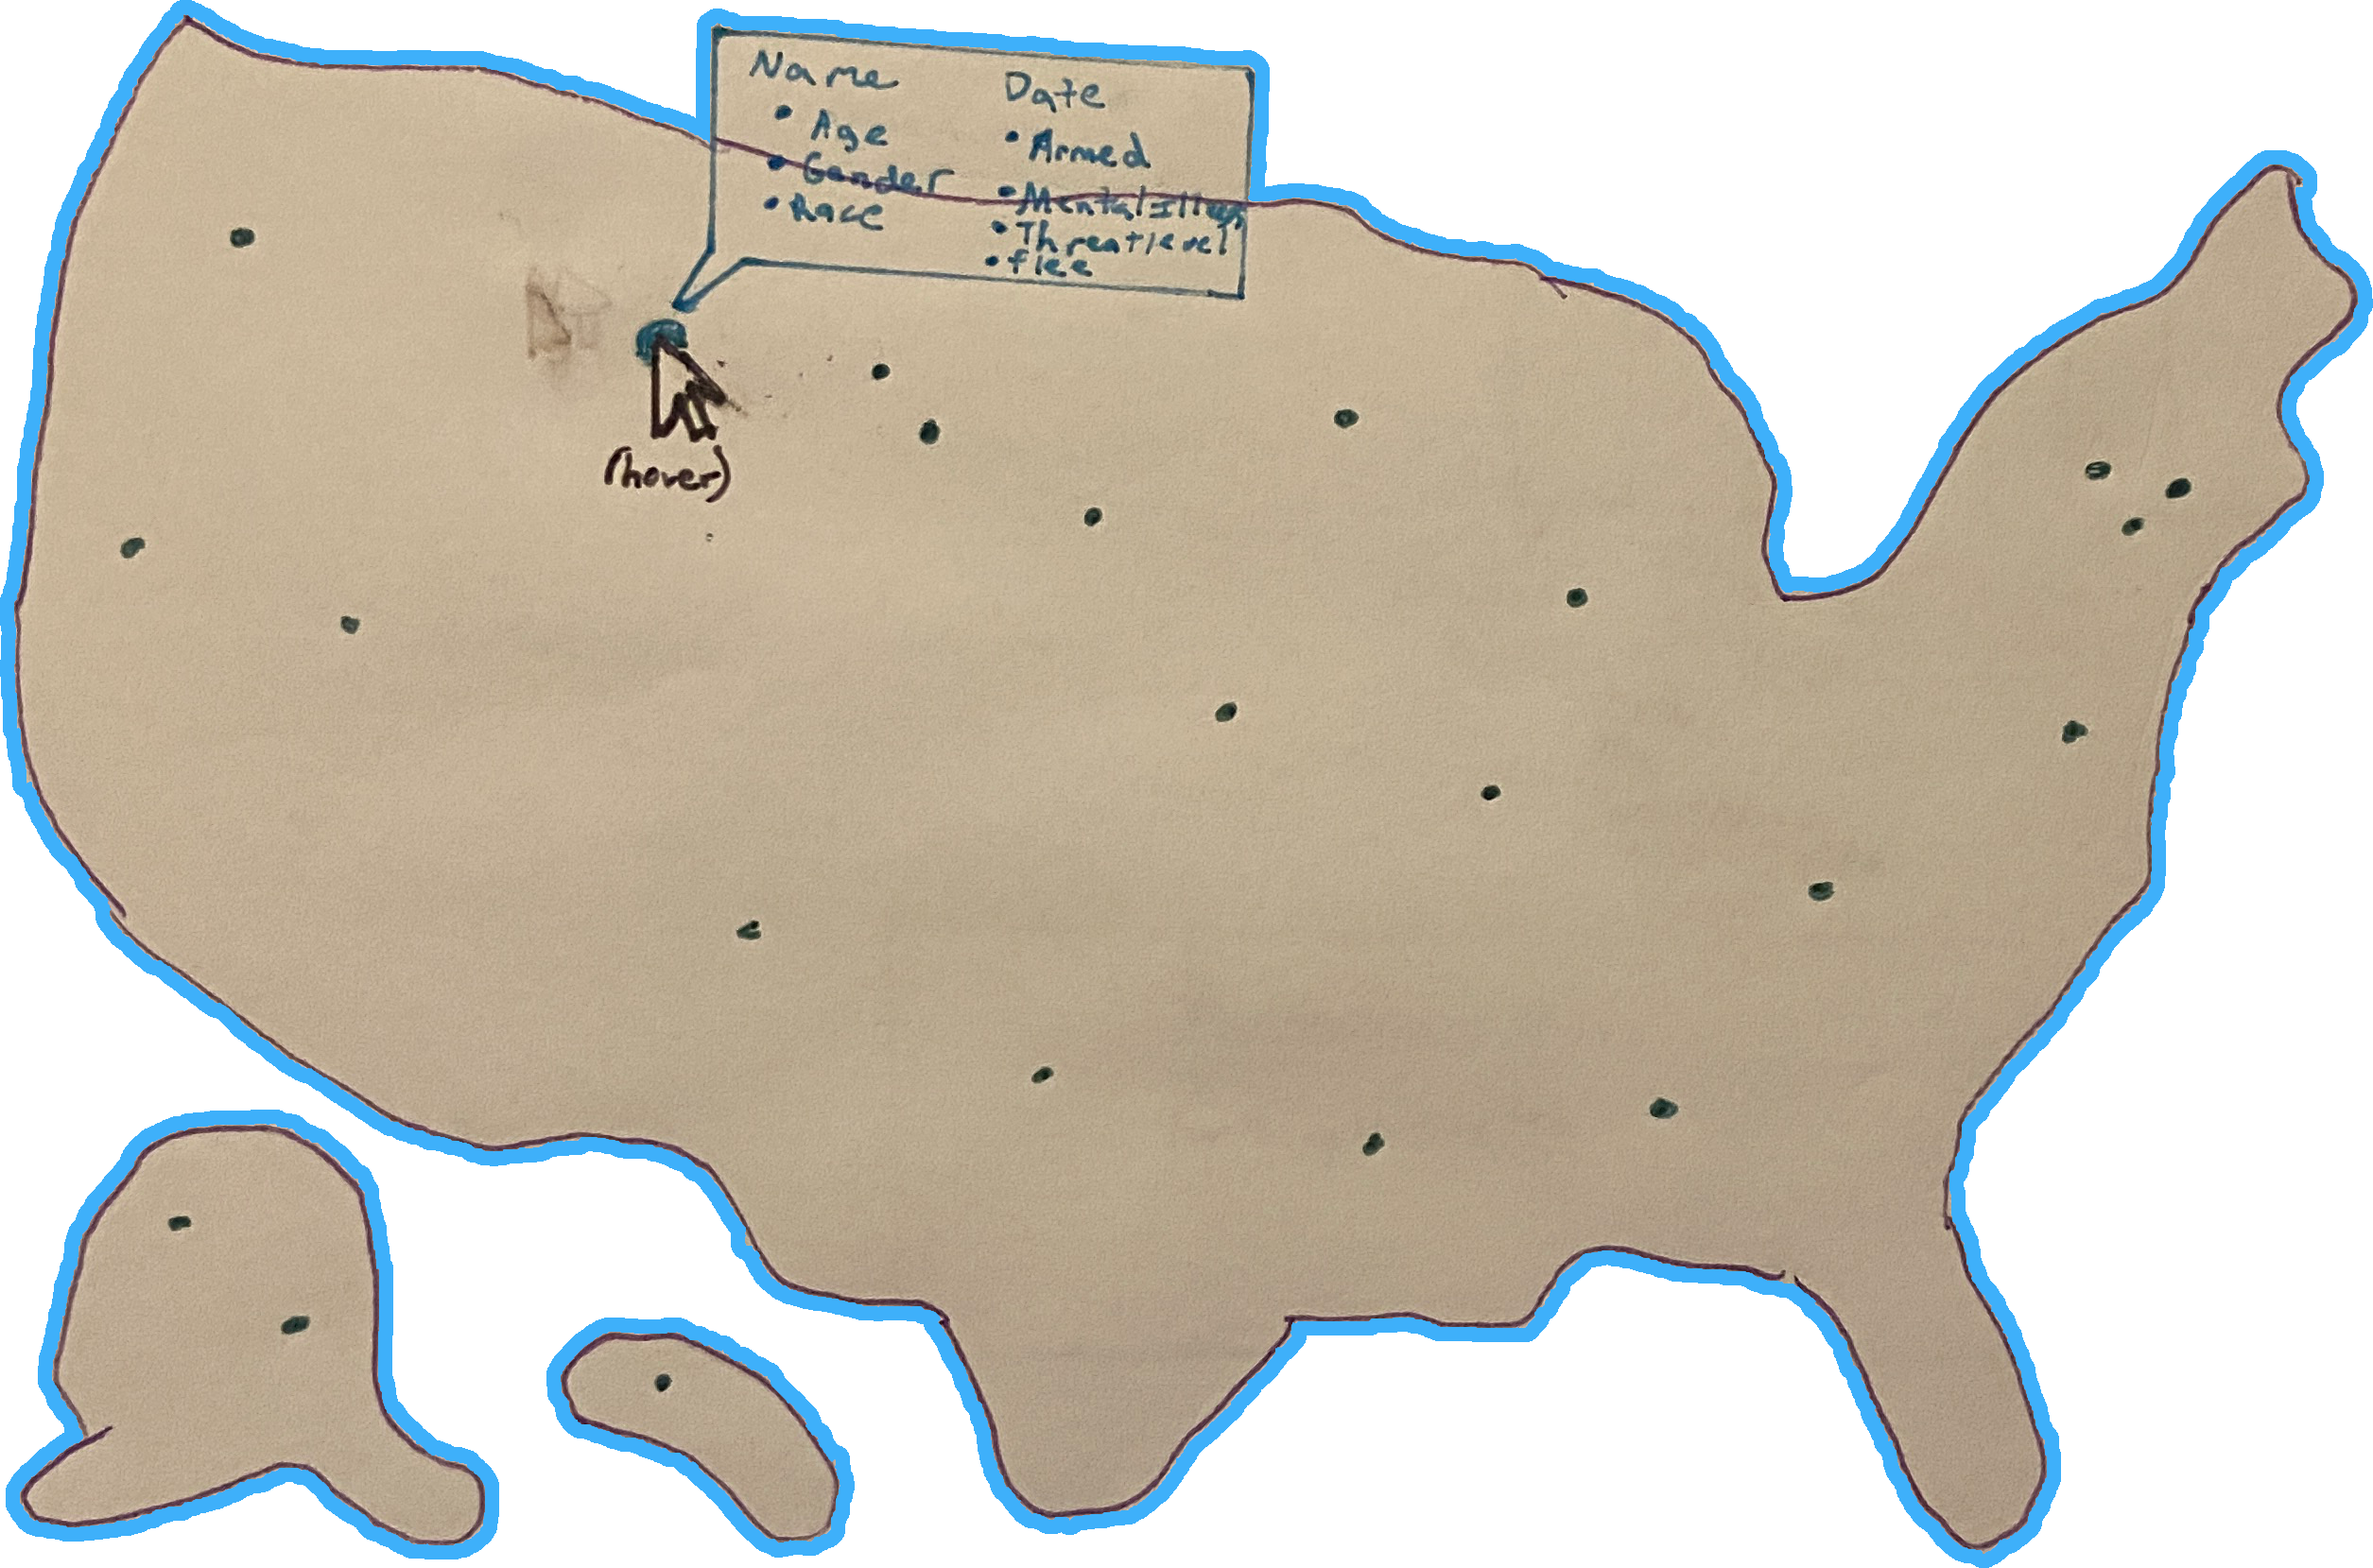 Name
• Age
• Gender
• Race
Date
• Armed
• Mental Illness
• Threat level
• flee
(hover)